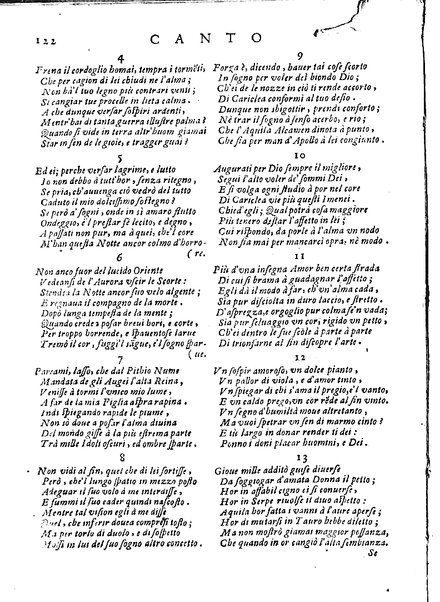 122 CANTO
4
Frena il cordoglio homai, tempra i torme͂ti,
Che per cagion di lei chiudi ne l'alma;
Non hà'l tuo legno più contrari venti;
Si cangiar tue procelle in lieta calma.
A che dunque versar sospiri ardenti,
Mentr'hai di tanta guerra illustre palma?
Quando si vide in terra altr'huom giamai
Star in sen de le gioie, e tragger guai?
5
Ed ei; perche versar lagrime, e lutto
Io non debbo à tutt'hor, senza ritegno,
Se pria, ch'auuenga ciò vedrò del tutto
Caduto il mio dolcissimo sostegno?
Se però a' sogni, onde in sì amaro flutto
Ondeggio, è'l prestar fè lecito, e degno,
A passati non pur, ma à quei, che'l core
M'han questa Notte ancor colmo d'horro-
(re.
6
Non anco fuor del lucido Oriente
Vedeansi de l'Aurora vscir le Scorte:
Stendea la Notte ancor suo velo algente;
E regnaua il compagno de la morte.
Dopò lunga tempesta de la mente;
Quando crede a posar breui hori, e corte,
Per troppo horrende, e spauenteuol larue
Tremò il cor, fuggì l sãgue, e'l sogno par-
(ue.
7
Pareami, lasso, che dal Pithio Nume
Mandata de gli Augei l'alta Reina,
Venisse à tormi l'vnico mio lume,
A far de la mia Figlia aspra rapina.
Indi spiegando rapide le piume,
Non iò doue a posar l'alma diuina
Del mondo gisse à la più estrema parte
Trà mille Idoli oscuri, ed ombre sparte.
8
Non vidi al fin, quel che di lei sortisse,
Però, che'l lungo spatio in mezzo posto
Adeguar il suo volo à me interdisse,
E summi il suo cader quindi nascosto.
Mentre tal vision egli à me disse
Duel, che inferir douea compresi tosto;
Ma per torlo di duolo, e di sospetto
Mossi in lui del suo sogno altro concetto.
9
Forza è, dicendo, hauer tai cose scorto
In sogno per voler del biondo Dio;
Ch'ei de le nozze in ciò ti rende accorto,
Di Cariclea conformi al tuo desio.
Dunque non sbigottir, prendi conforto;
Nè trar il sogno à senso acerbo, e rio;
Che l'Aquila Aleawen dinota à punto,
Che sia per man d'Apollo à lei congiunto.
10
Augurati per Dio sempre il migliore,
Segui l'alto voler de' sommi Dei,
E si volga ogni studio à por nel core
Di Cariclea vie più questi Imenei.
Chied'egli; Qual potrà cosa maggiore
Più tenero destar l'affetto in lei;
Cui rispondo, da porle à l'alma vn nodo
Non sia mai per mancarci opra; nè modo.
11
Più d'vna insegna Amor ben certa strada
Di cui si brama à guadagnar l'affetto;
Egli dà il modo à far; ch'vn'alma cada,
Sia pur disciolta in duro laccio, e stretto.
D'asprezza, e orgoglio pur colma se'n vada;
Sia pur seluaggio vn cor; rigido vn petto,
Ch'ei dentro le sue scole à parte à parte
Di trionfarne al fin discopre l'arte.
12
Vn sospir amoroso, vn dolce pianto,
Vn pallor di viola, e d'amor tinto,
Vn spiegar di chi s'ama il pregio, e'l vanto,
E vn caldo prego, vn cor rẽde al fin vinto.
Vn segno d'humiltà moue altretanto,
Ma vuoi spetrar vn sen di marmo cinto?
E tù largo in donar render ti dei:
Ponno i doni placar huomini, e Dei.
13
Gioue mille additò guise diuerse
Da soggiogar d'amata Donna il petto;
Hor in affabil cigno ei si conuerse,
Hor in Serpe riuolse il diuo aspetto:
Aquila hor fatta i vanni à l'aure aperse;
Hor di mutarsi in Tauro hebbe diletto;
Ma non mostrò giamai maggior possanza,
Che quando in or cangiò l'alta sembianza.
Se